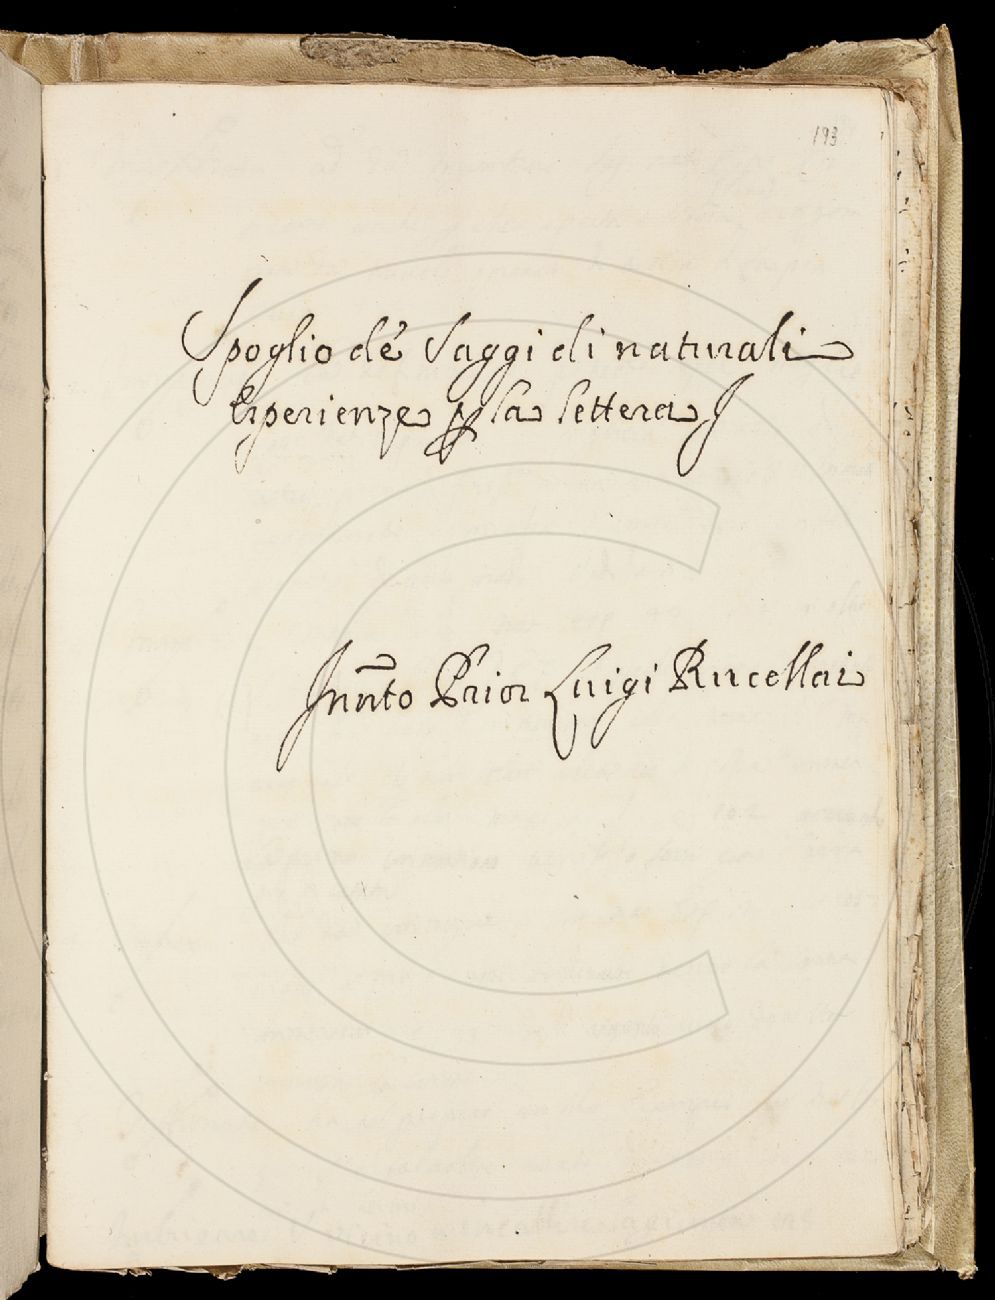 193
Spoglio de' Saggi di naturali
Esperienze p la lettera I
Innto Prior Luigi Rucellai